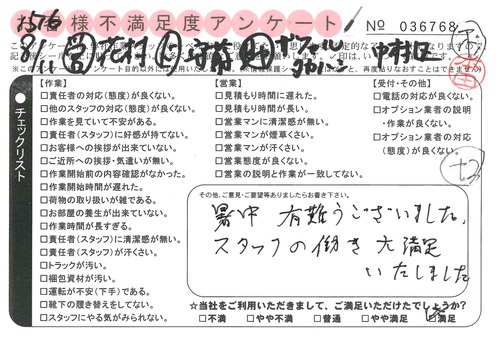 お客様不満足度アンケート
№ 036768
中村区
チェックリスト
【作業】
□責任者の対応(態度)が良くない。
□他のスタッフの対応(態度)が良くない。
□作業を見ていて不安がある。
□責任者(スタッフ)に好感が持てない。
□お客様への挨拶が出来ていない。
□ご近所への挨拶・気遣いが無い。
□作業開始前の内容確認がなかった。
□作業開始時間が遅れた。
□荷物の取り扱いが雑である。
□お部屋の養生が出来ていない。
□作業時間が長すぎる。
□責任者(スタッフ)に清潔感が無い。
□責任者(スタッフ)が汗くさい。
□トラックが汚い。
□梱包資材が汚い。
□運転が不安(下手)である。
□靴下の履き替えをしてない。
□スタッフにやる気がみられない。
【営業】
□見積もり時間に遅れた。
□見積もり時間が長い。
□営業マンに清潔感が無い。
□営業マンが煙草くさい。
□営業マンが汗くさい。
□営業態度が良くない。
□営業の説明と作業が一致してない。
【受付・その他】
□電話の対応が良くない。
□オプション業者の説明
・作業が良くない。
□オプション業者の対応
(態度)が良くない。
その他、ご意見・ご要望等ありましたらお書き下さい。
暑中 有難うございました。
スタッフの働き 大満足
いたしました
☆当社をご利用いただきまして、ご満足いただけたでしょうか?
□不満 □やや不満 □普通 □やや満足 □満足